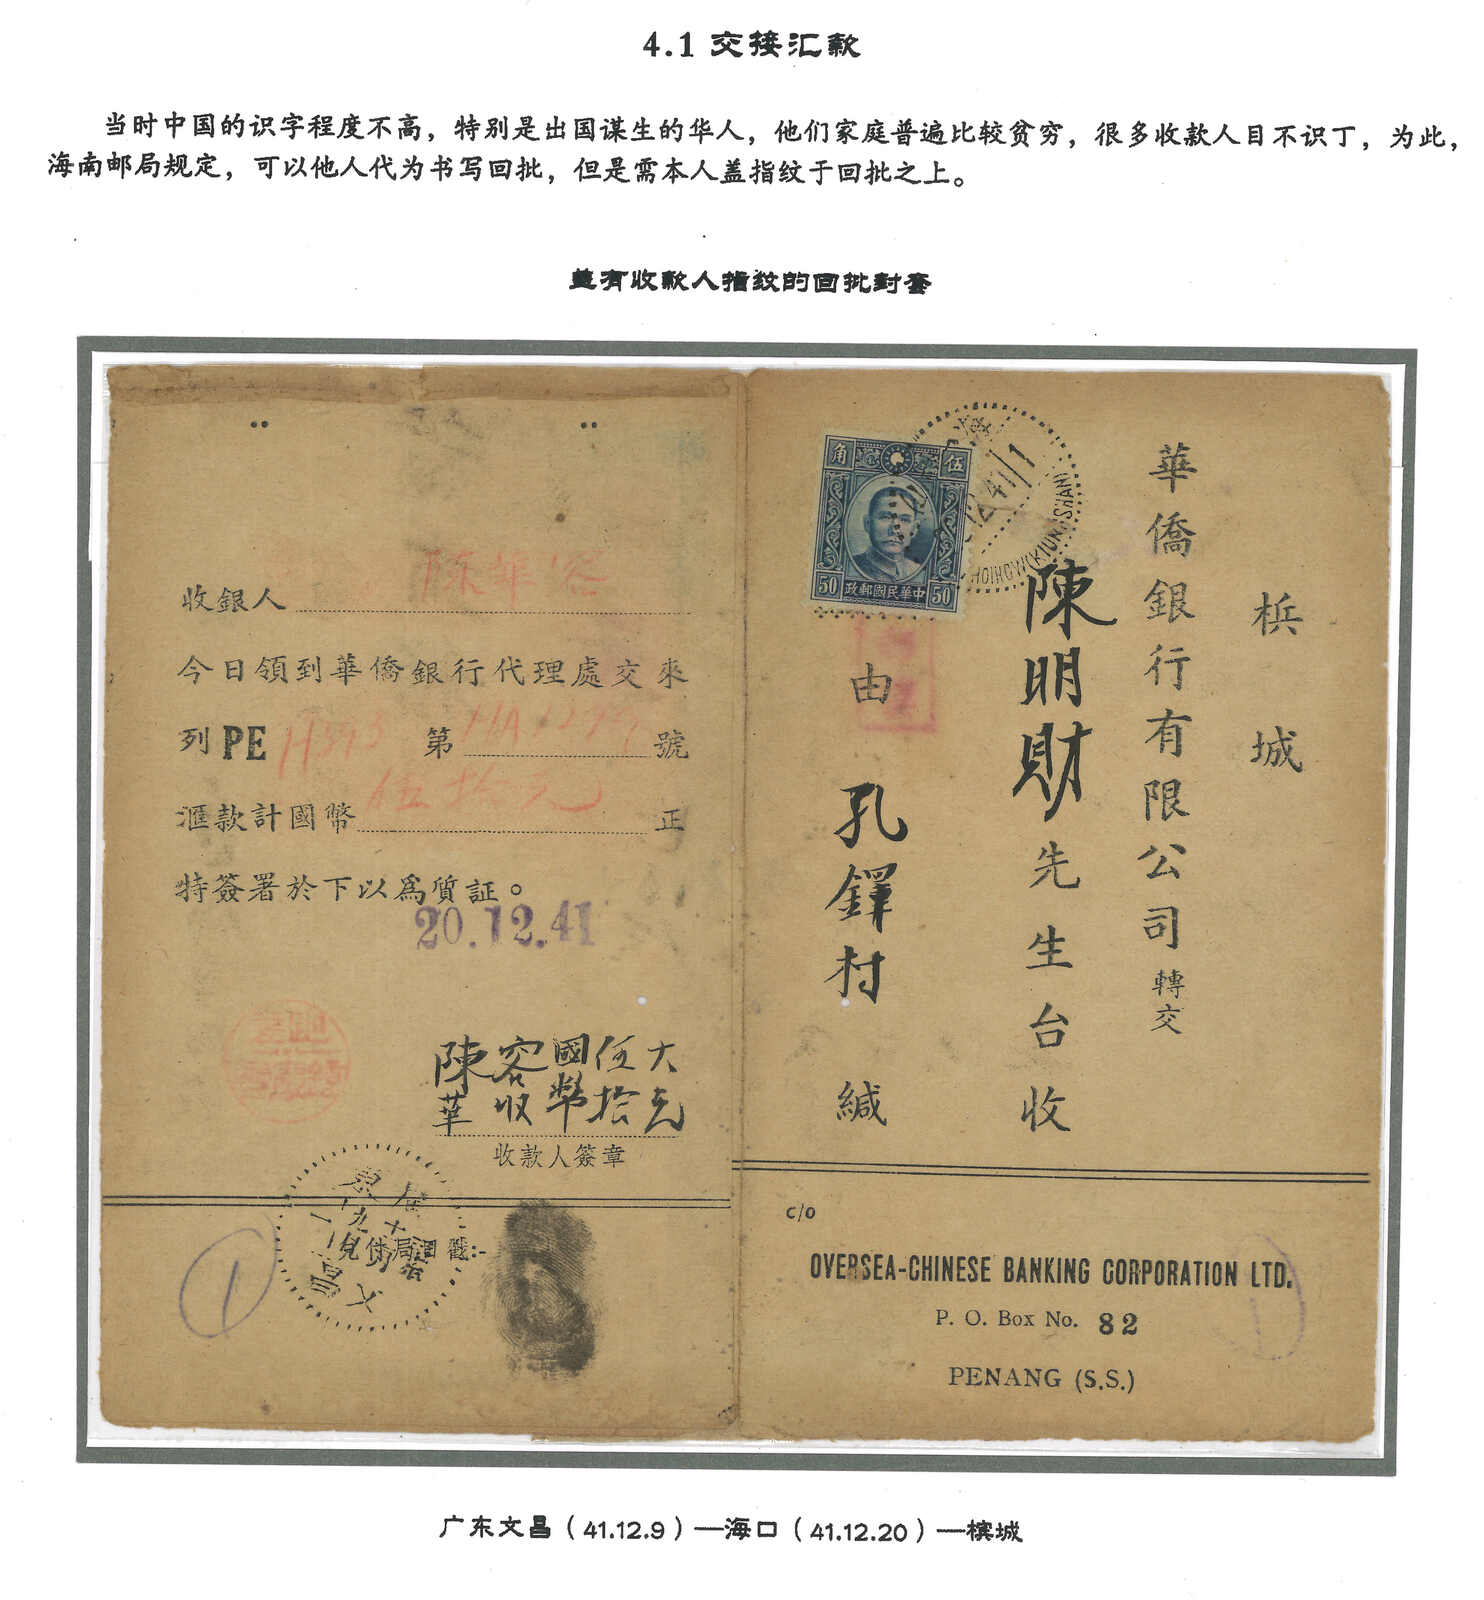 4.1 交接汇款
当时中国的识字程度不高，特别是出国谋生的华人，他们家庭普遍比较贫穷，很多收款人目不识丁，为此，
海南邮局规定，可以他人代为书写回批，但是需本人盖指纹于回批之上。
盖有收款人指纹的回批封套
收銀人 陳華容
今日領到華僑銀行代理處交來
列PE 第 號
滙款計國幣 伍拾元 正
特簽署於下以爲質証。
20.12.41
大元
伍拾
國幣
容收
陳華
收款人簽章
兌付局日戳:-
1
伍 角
50 中華民國郵政 50
海
12.41/1
HOIHOW(KIUNGSHAN)
梹城
華僑銀行有限公司轉交
陳明財先生台收
由孔鐸村緘
c/o
OVERSEA-CHINESE BANKING CORPORATION LTD.
P. O. Box No. 82
PENANG (S.S.)
广东文昌（41.12.9）—海口（41.12.20）—槟城